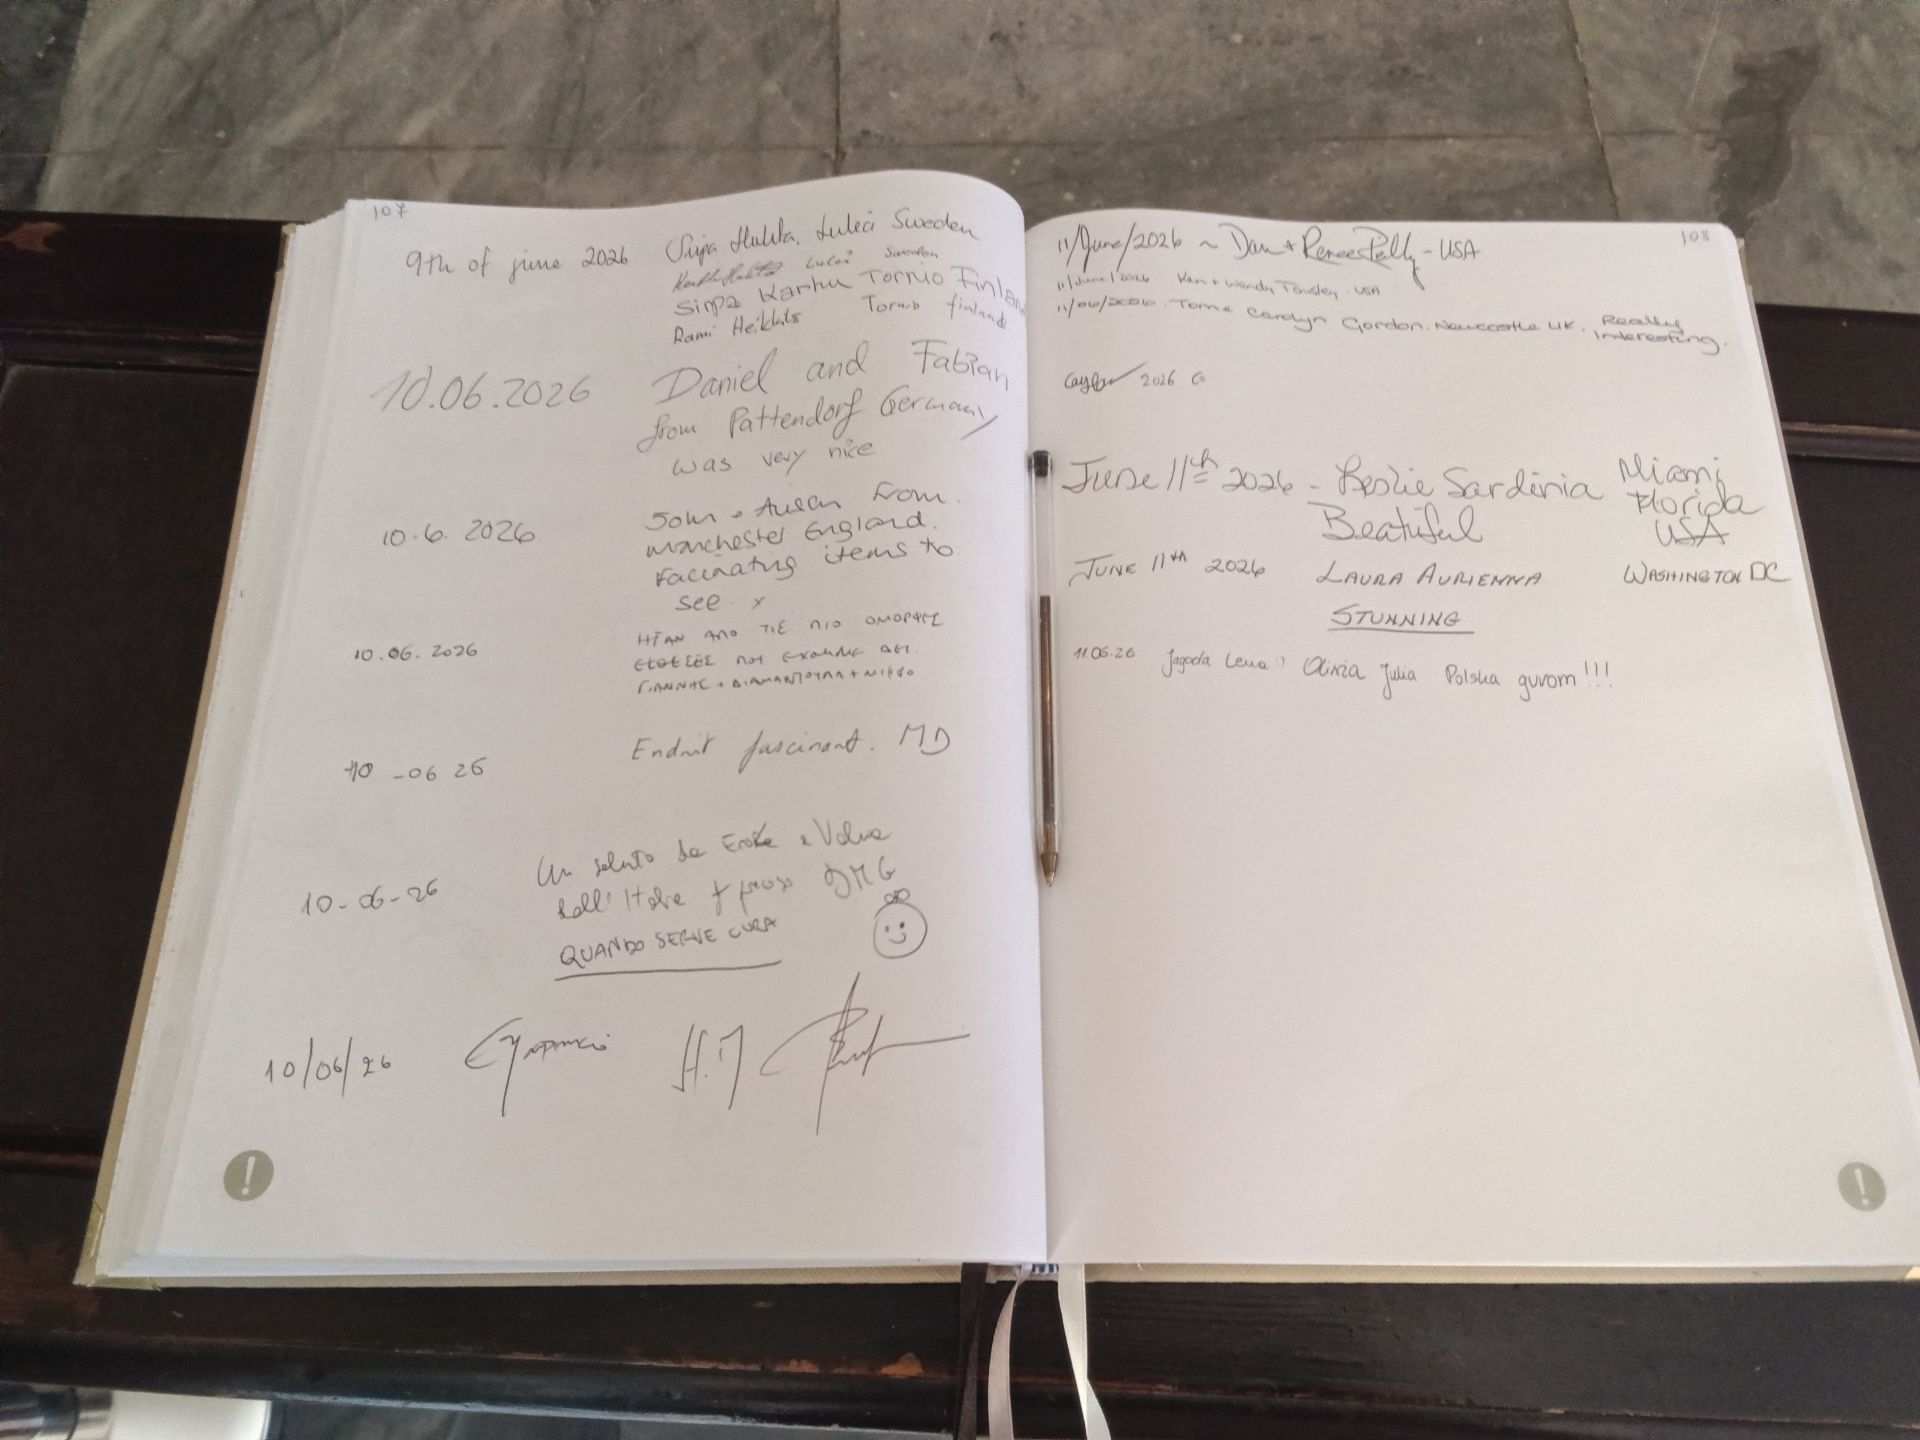 107
9th of june 2026 Sirpa Huhta. Luleå Sweden
Luleå Sweden
Sirpa Karhu Tornio Finland
Rami Tornio finland
10.06.2026 Daniel and Fabian
from Pattendorf Germany
was very nice
10.6.2026 John + from.
Manchester England.
Facinating items to
see x
10.06.2026 ΗΤΑΝ ΑΠΟ ΤΙΣ ΠΙΟ ΟΜΟΡΦΕΣ
ΠΟΥ ΕΧΟΥΜΕ ΔΕΙ.
ΓΙΑΝΝΗΣ + ΔΙΑΜΑΝΤΟΥΛΑ +
10-06 26 Endroit fascinant. MD
10-06-26 Un saluto da e
dall'
QUANDO SERVE CURA
10/06/26 H.J
!
108
11/June/2026 ~ Dan + Renee - USA
11/June/2026 Ken + Wendy Tousley. USA
11/06/2026. Carolyn Gordon. Newcastle UK. Really
interesting.
2026 G
June 11th 2026 - Leslie Sardinia Miami
Beatiful Florida
USA
JUNE 11TH 2026 LAURA AURIEMMA WASHINGTON DC
STUNNING
11.06.26 Jagoda Lena :) Oliwia Julia Polska gurom!!!
!